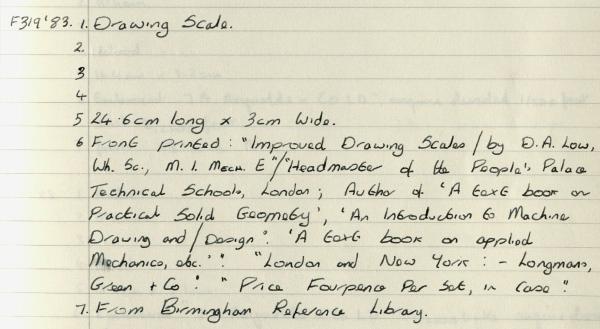 F319'83. 1. Drawing Scale.
2.
3
4
5 24.6cm long x 3cm wide.
6 Front printed: "Improved Drawing Scales / by D.A. Low,
Wh. Sc., M. I. Mech. E"/"Headmaster of the People's Palace
Technical Schools, London; Author of 'A text book on
Practical Solid Geometry', 'An Introduction to Machine
Drawing and / Design'. 'A text book on applied
Mechanics, etc.'" "London and New York: - Longmans,
Green + Co". "Price Fourpence Per Set, in Case".
7. From Birmingham Reference Library.